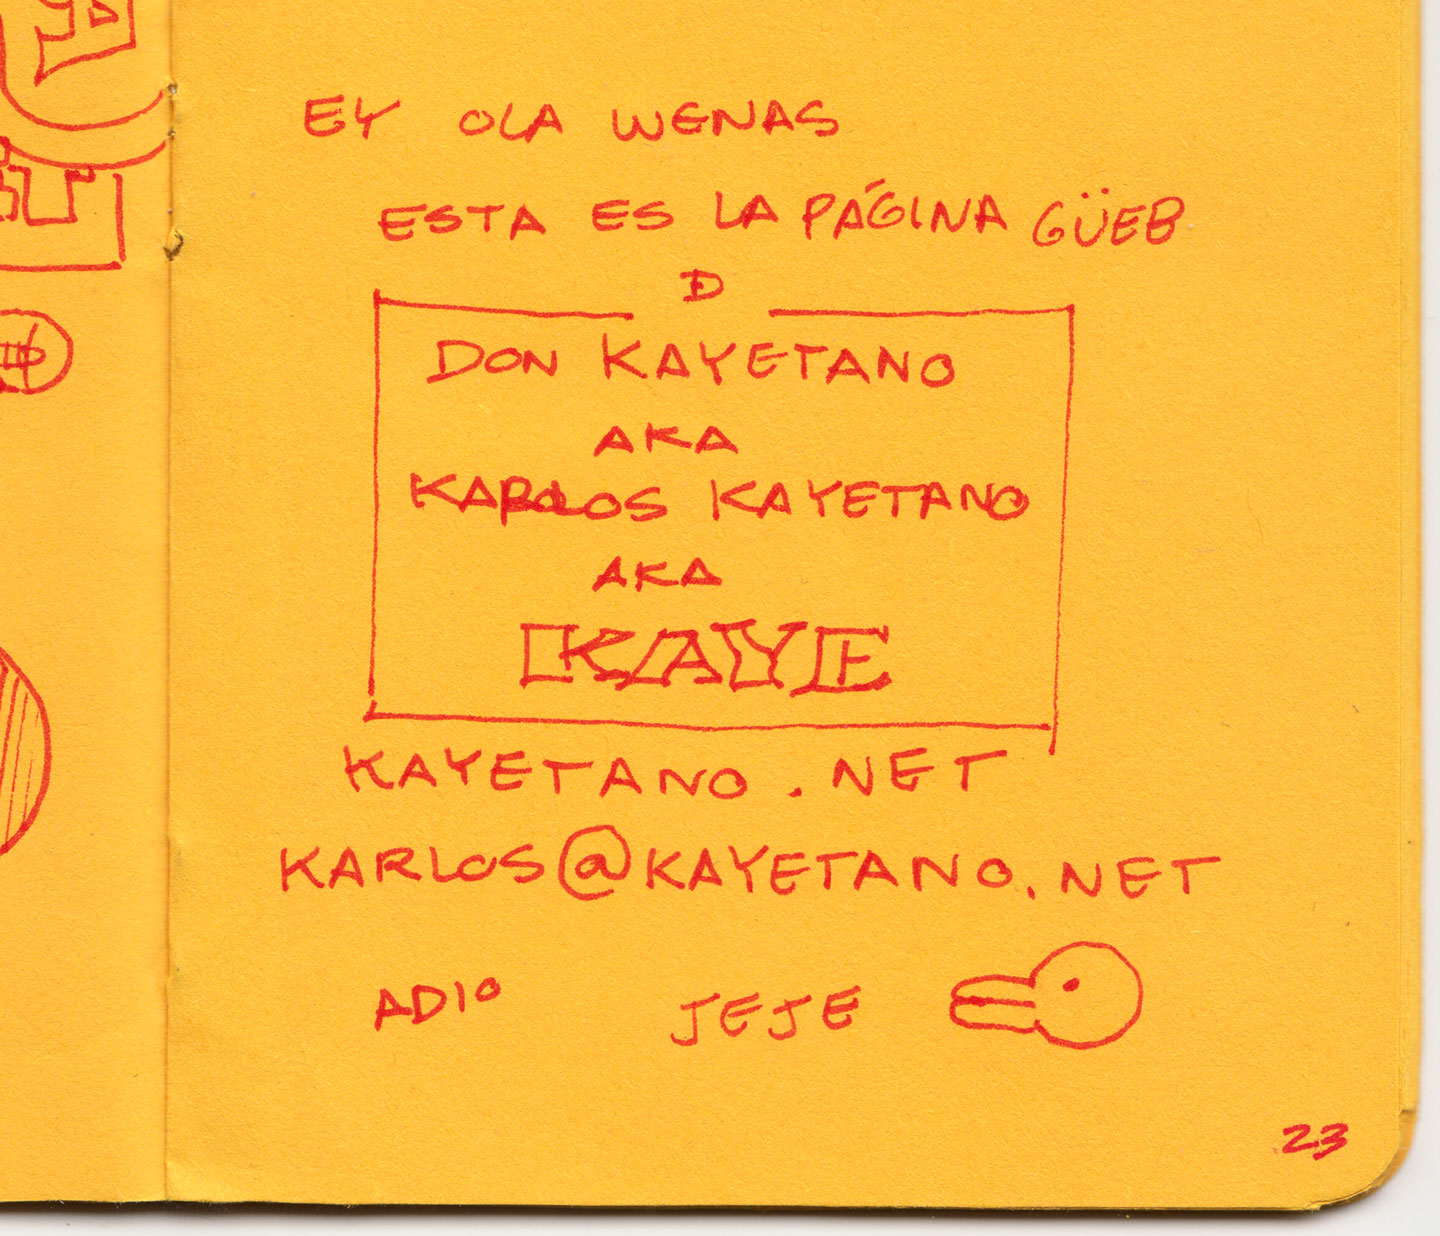 EY OLA WENAS
ESTA ES LA PÁGINA GÜEB
D
DON KAYETANO
AKA
KARLOS KAYETANO
AKA
KAYE
KAYETANO.NET
KARLOS@KAYETANO.NET
ADIO JEJE
23